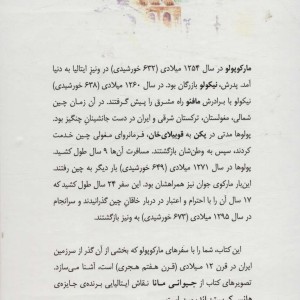 مارکوپولو در سال ۱۲۵۴ میلادی (۶۳۲ خورشیدی) در ونیز ایتالیا به دنیا
آمد. پدرش، نیکولو بازرگان بود. در سال ۱۲۶۰ میلادی (۶۳۸ خورشیدی)
نیکولو با برادرش مافئو راه مشرق را پیش گرفتند. در آن زمان چین
شمالی، مغولستان، ترکستان شرقی و ایران در دست جانشینانِ چنگیز بود.
پولوها مدتی در پکن به قوبیلای‌خان، فرمانروای مغولی چین خدمت
کردند، سپس به وطن‌شان بازگشتند. مسافرت آن‌ها ۹ سال طول کشید.
پولوها در سال ۱۲۷۱ میلادی (۶۴۹ خورشیدی) بار دیگر به چین رفتند.
این‌بار مارکوی جوان نیز همراهشان بود. این سفر ۲۴ سال طول کشید که
۱۷ سال آن را با احترام و اعتبار در دربار خاقانِ چین گذرانیدند و سرانجام
در سال ۱۲۹۵ میلادی (۶۷۳ خورشیدی) به ونیز بازگشتند.
این کتاب، شما را با سفرهای مارکوپولو که بخشی از آن گذر از سرزمین
ایران در قرن ۱۲ میلادی (قرن هفتم هجری) است، آشنا می‌سازد.
تصویرهای کتاب از نقاش ایتالیایی برنده‌ی جایزه‌ی